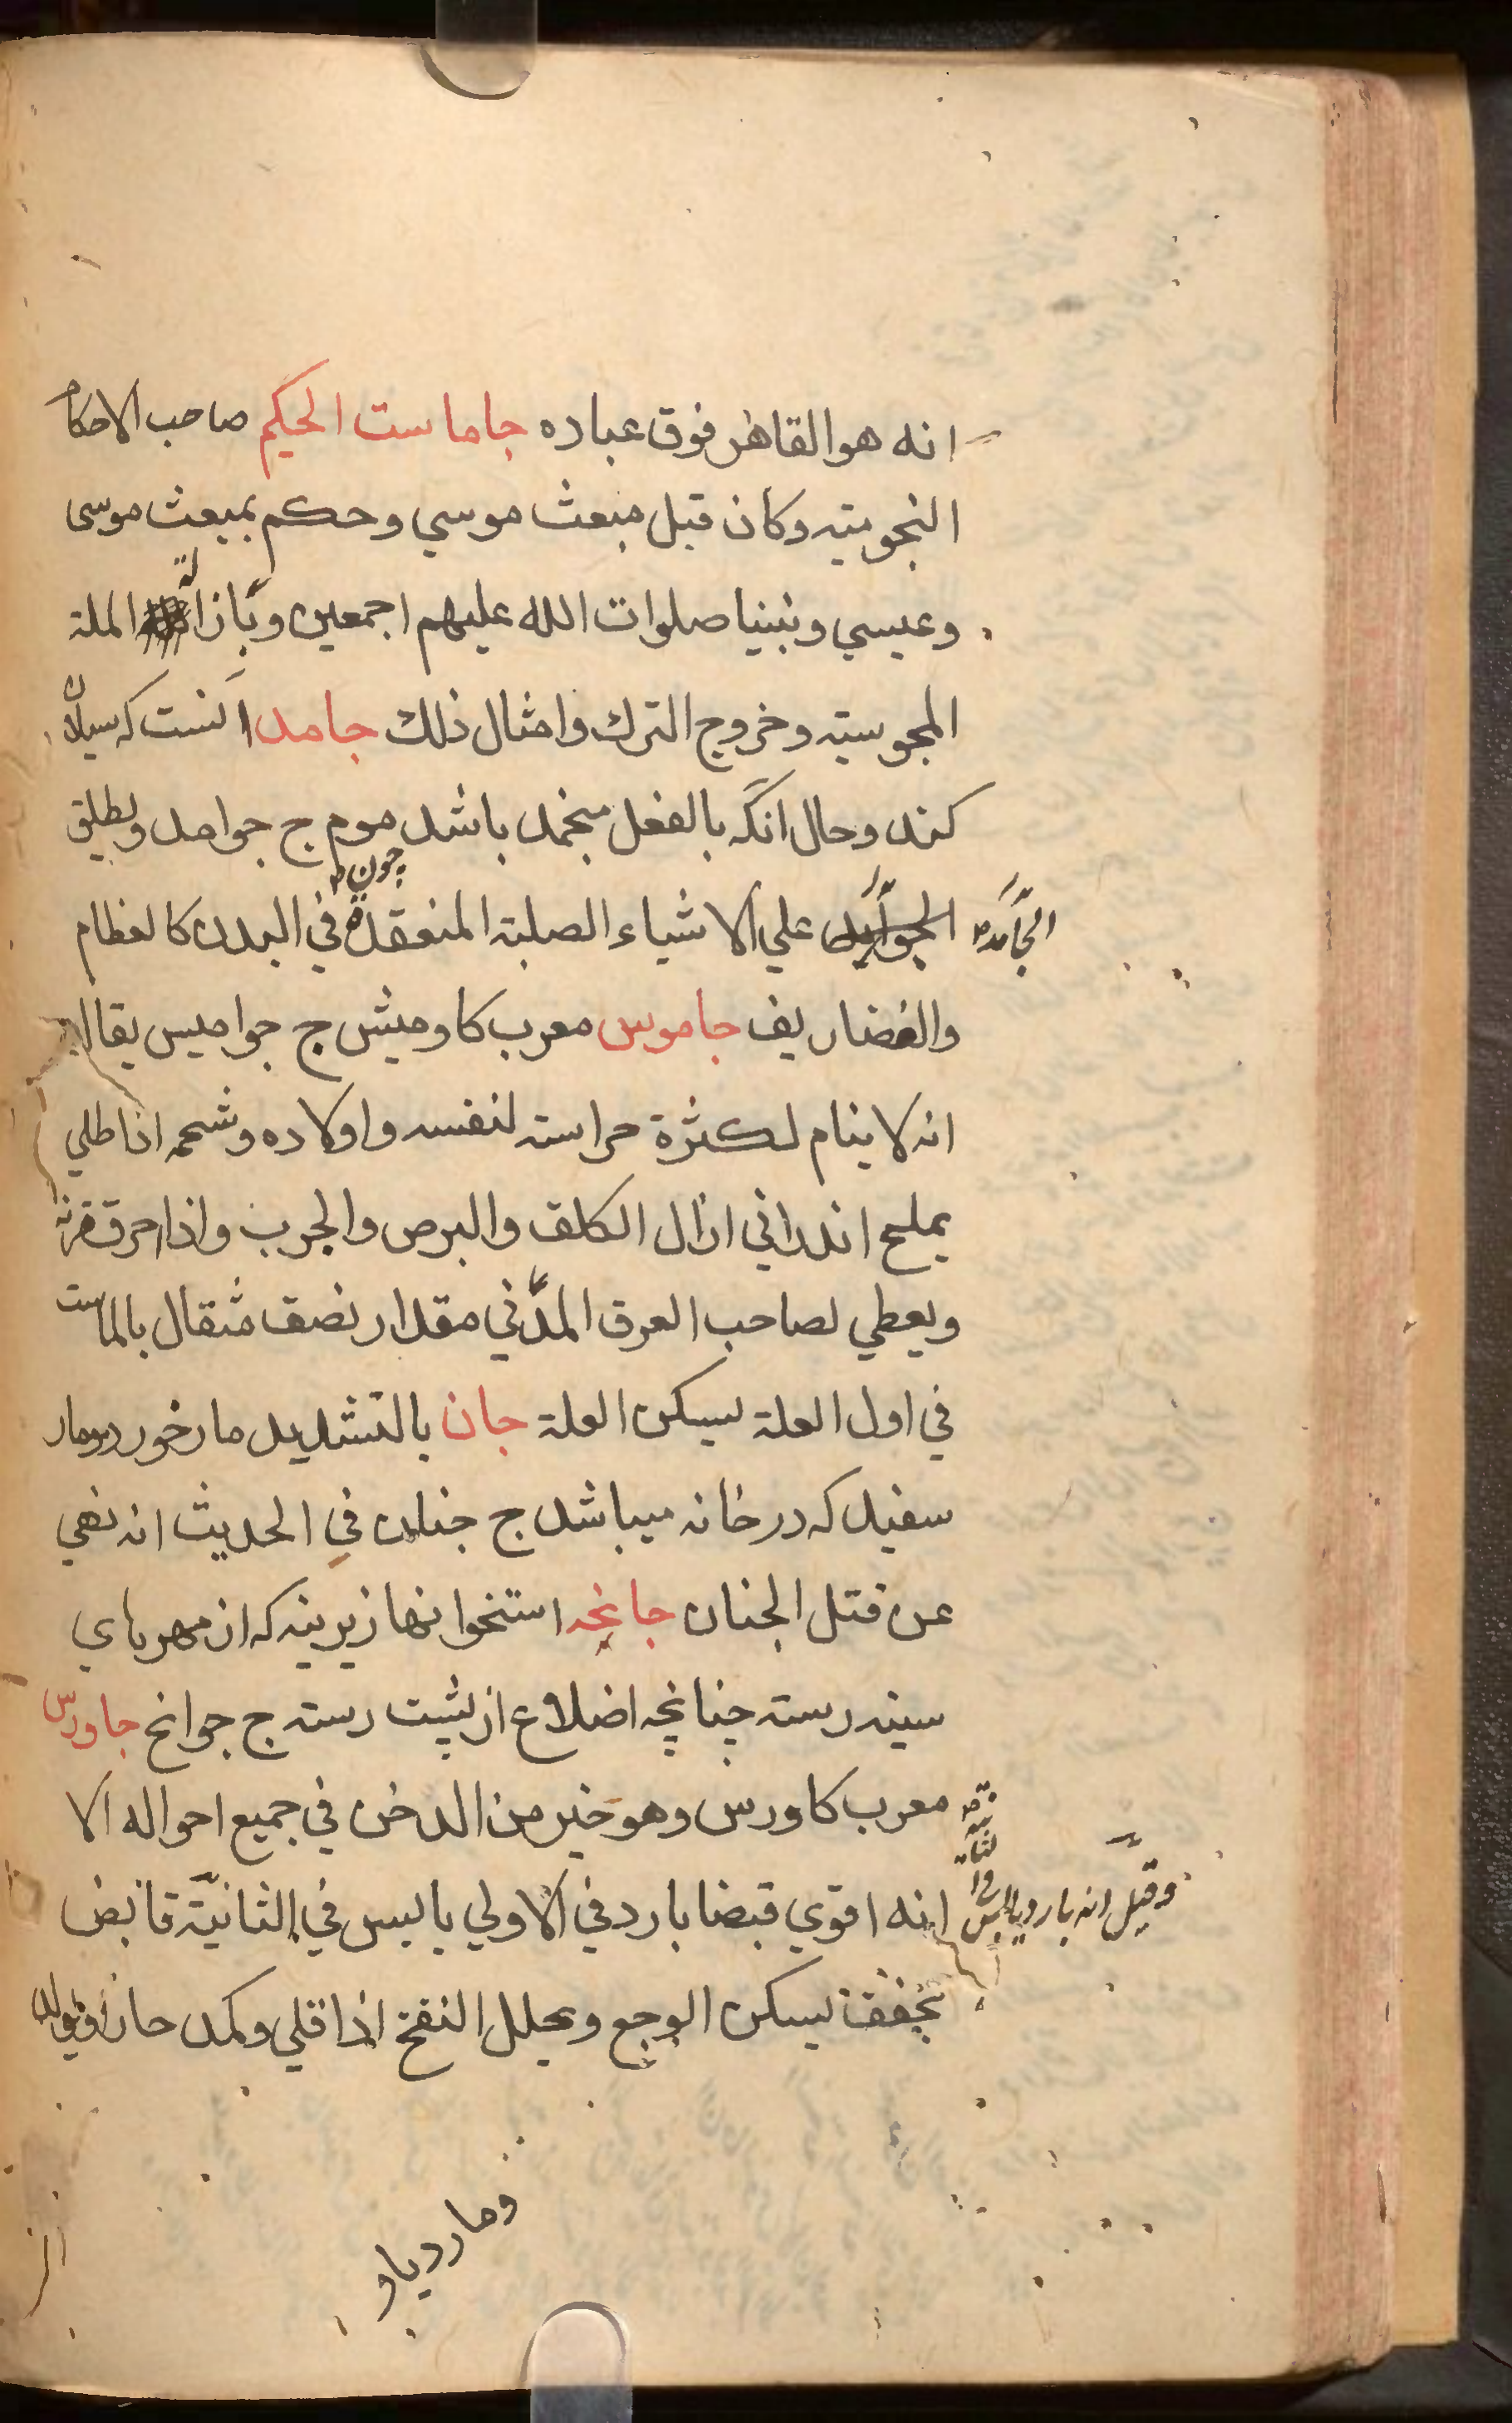 انه هو القاهر فوق عباده جاماست الحكيم صاحب الاحكام
النجوميّه وكان قبل مبعث موسي وحكم بمبعث موسى
وعيسي ونبينا صلوات الله عليهم اجمعين وبازالة الملة
المجوسيّه وخروج الترك وامثال ذلك جامد آنست كه سيلان
كند وحال آنكه بالفعل منجمد باشد چون موم ج جوامد ويطلق
الجوامد علي الاشياء الصلبة المنعقدة في البدن كالعظام
الجامد
والغضاريف جاموس معرب كاوميش ج جواميس يقال
انه لا ينام لكثرة حراسته لنفسه واولاده وشحمه اذا طلي
بملح اندراني ازال الكلف والبرص والجرب واذا احرق قرنه
ويعطي لصاحب العرق المدني مقدار نصف مثقال بالماست
في اول العلة ليسكن العلة جان بالتشديد مار خورد ومار
سفيد كه در خانه ميباشد ج جنان في الحديث انه نهي
عن قتل الجنان جانحه استخوانها زيرينه كه از مهرهاي
سينه رسته چنانچه اضلاع از پشت رسته ج جوانح جاورس
معرب كاورس وهو خير من الدخن في جميع احواله الا
انه اقوي قبضا بارد في الاولي يابس في الثانيّة قابض
وقيل انه بارد يابس في الثانية
مجفف يسكن الوجع ويحلل النفخ اذا قلي وكمد حارا ويولد
وما رديا و